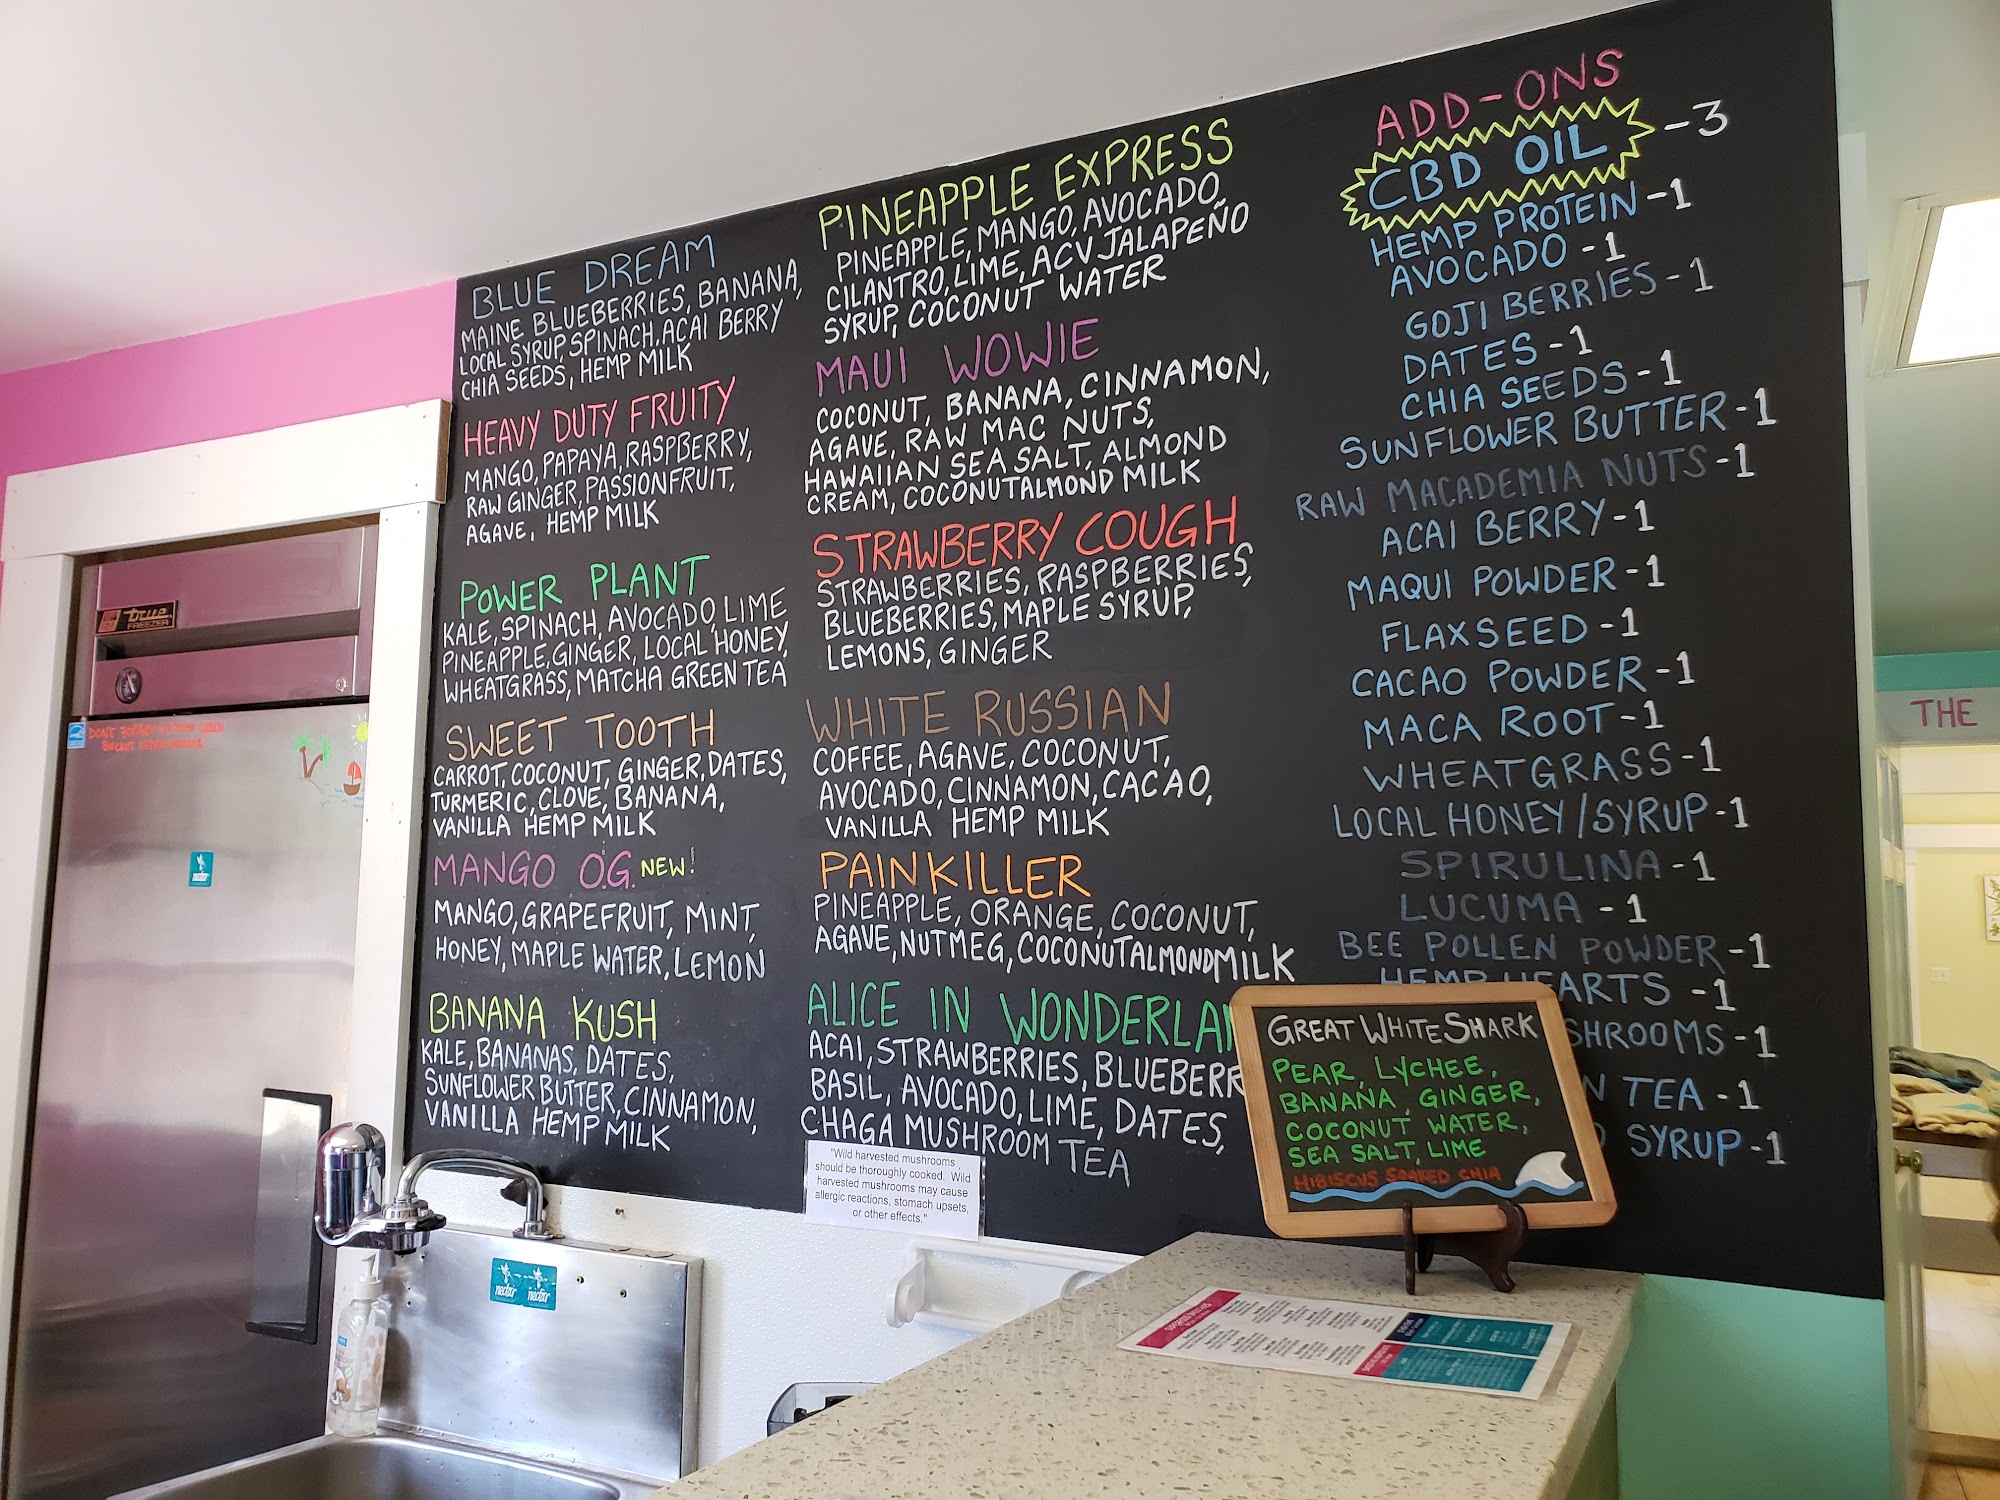 BLUE DREAM
MAINE BLUEBERRIES, BANANA,
LOCAL SYRUP, SPINACH, ACAI BERRY
CHIA SEEDS, HEMP MILK
HEAVY DUTY FRUITY
MANGO, PAPAYA, RASPBERRY,
RAW GINGER, PASSIONFRUIT,
AGAVE, HEMP MILK
POWER PLANT
KALE, SPINACH, AVOCADO, LIME
PINEAPPLE, GINGER, LOCAL HONEY,
WHEATGRASS, MATCHA GREEN TEA
SWEET TOOTH
CARROT, COCONUT, GINGER, DATES,
TURMERIC, CLOVE, BANANA,
VANILLA HEMP MILK
MANGO O.G. NEW!
MANGO, GRAPEFRUIT, MINT,
HONEY, MAPLE WATER, LEMON
BANANA KUSH
KALE, BANANAS, DATES,
SUNFLOWER BUTTER, CINNAMON,
VANILLA HEMP MILK
PINEAPPLE EXPRESS
PINEAPPLE, MANGO, AVOCADO,
CILANTRO, LIME, ACV JALAPEÑO
SYRUP, COCONUT WATER
MAUI WOWIE
COCONUT, BANANA, CINNAMON,
AGAVE, RAW MAC NUTS,
HAWAIIAN SEA SALT, ALMOND
CREAM, COCONUTALMOND MILK
STRAWBERRY COUGH
STRAWBERRIES, RASPBERRIES,
BLUEBERRIES, MAPLE SYRUP,
LEMONS, GINGER
WHITE RUSSIAN
COFFEE, AGAVE, COCONUT,
AVOCADO, CINNAMON, CACAO,
VANILLA HEMP MILK
PAINKILLER
PINEAPPLE, ORANGE, COCONUT,
AGAVE, NUTMEG, COCONUTALMONDMILK
ALICE IN WONDERLAN
ACAI, STRAWBERRIES, BLUEBERR
BASIL, AVOCADO, LIME, DATES,
CHAGA MUSHROOM TEA
"Wild harvested mushrooms
should be thoroughly cooked. Wild
harvested mushrooms may cause
allergic reactions, stomach upsets,
or other effects."
ADD-ONS
CBD OIL -3
HEMP PROTEIN -1
AVOCADO -1
GOJI BERRIES -1
DATES -1
CHIA SEEDS -1
SUNFLOWER BUTTER -1
RAW MACADEMIA NUTS -1
ACAI BERRY -1
MAQUI POWDER -1
FLAXSEED -1
CACAO POWDER -1
MACA ROOT -1
WHEATGRASS -1
LOCAL HONEY/SYRUP -1
SPIRULINA -1
LUCUMA -1
BEE POLLEN POWDER -1
HEMP HEARTS -1
SHROOMS -1
N TEA -1
SYRUP -1
GREAT WHITE SHARK
PEAR, LYCHEE,
BANANA, GINGER,
COCONUT WATER,
SEA SALT, LIME
HIBISCUS SOAKED CHIA
true
FREEZER
nectar nectar
THE